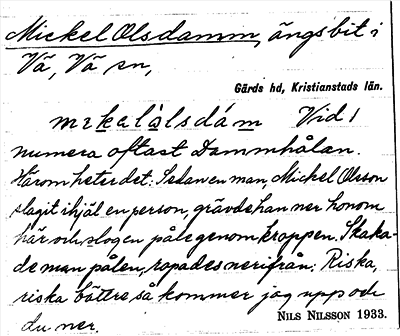 Mickel Olsdamm, ängsbit i
Vä, Vä sn,
Gärds hd, Kristianstads län.
mɪkalålsdám Vid 1
numera oftast Dammhålan.
Härom heter det: Sedan en man, Mickel Olsson
slagit ihjäl en person, grävde han ner honom
här och slog en påle genom kroppen. Skaka-
de man pålen, ropades nerifrån: Riska,
riska bättre så kommer jag upp och
du ner.
NILS NILSSON 1933.